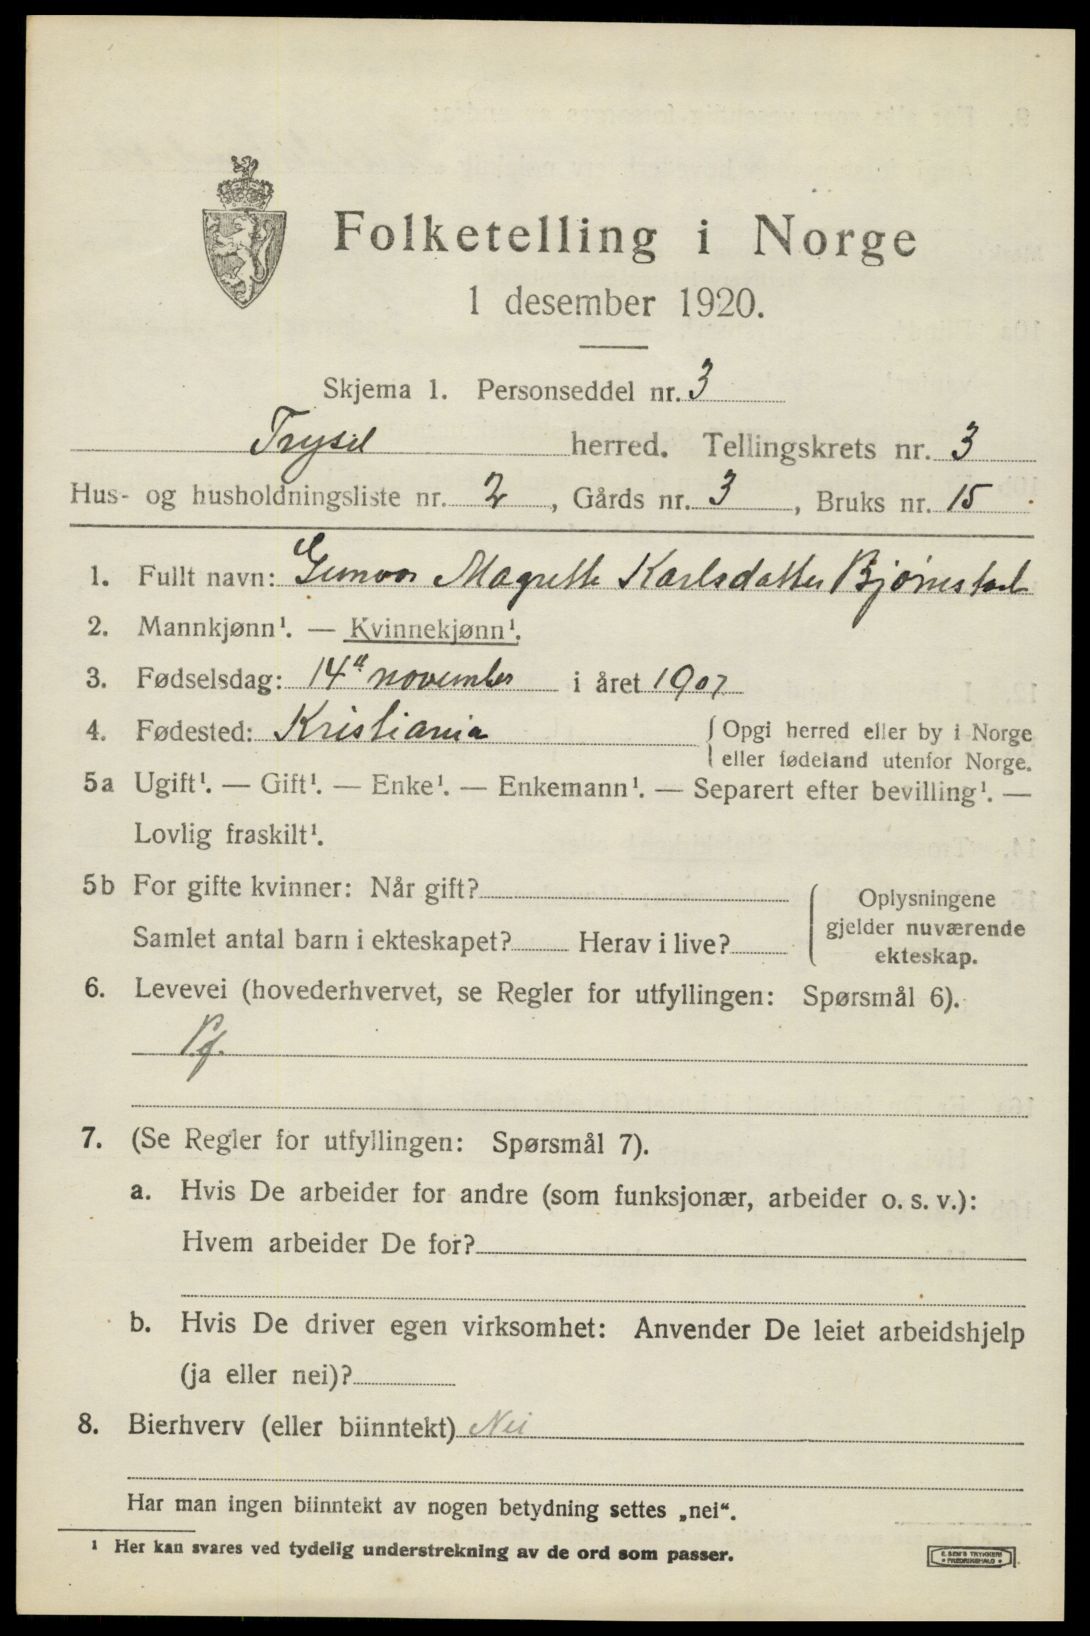 Folketelling i Norge
1 desember 1920.
Skjema 1. Personseddel nr. 3
Trysil herred. Tellingskrets nr. 3
Hus- og husholdningsliste nr. 2, Gårds nr. 3, Bruks nr. 15
1. Fullt navn: Gunvor Magrethe Karlsdatter Bjørnstad
2. Mannkjønn¹. — Kvinnekjønn¹.
3. Fødselsdag: 14de november i året 1907
4. Fødested: Kristiania { Opgi herred eller by i Norge
eller fødeland utenfor Norge.
5a Ugift¹. — Gift¹. — Enke¹. — Enkemann¹. — Separert efter bevilling¹. —
Lovlig fraskilt¹.
5b For gifte kvinner: Når gift? { Oplysningene
gjelder nuværende
Samlet antal barn i ekteskapet? Herav i live?
ekteskap.
6. Levevei (hovederhvervet, se Regler for utfyllingen: Spørsmål 6).
Pf.
7. (Se Regler for utfyllingen: Spørsmål 7).
a. Hvis De arbeider for andre (som funksjonær, arbeider o. s. v.):
Hvem arbeider De for?
b. Hvis De driver egen virksomhet: Anvender De leiet arbeidshjelp
(ja eller nei)?
8. Bierhverv (eller biinntekt) Nei
Har man ingen biinntekt av nogen betydning settes „nei“.
¹ Her kan svares ved tydelig understrekning av de ord som passer.
E. SEM'S TRYKKERI
• FREDRIKSHALD •